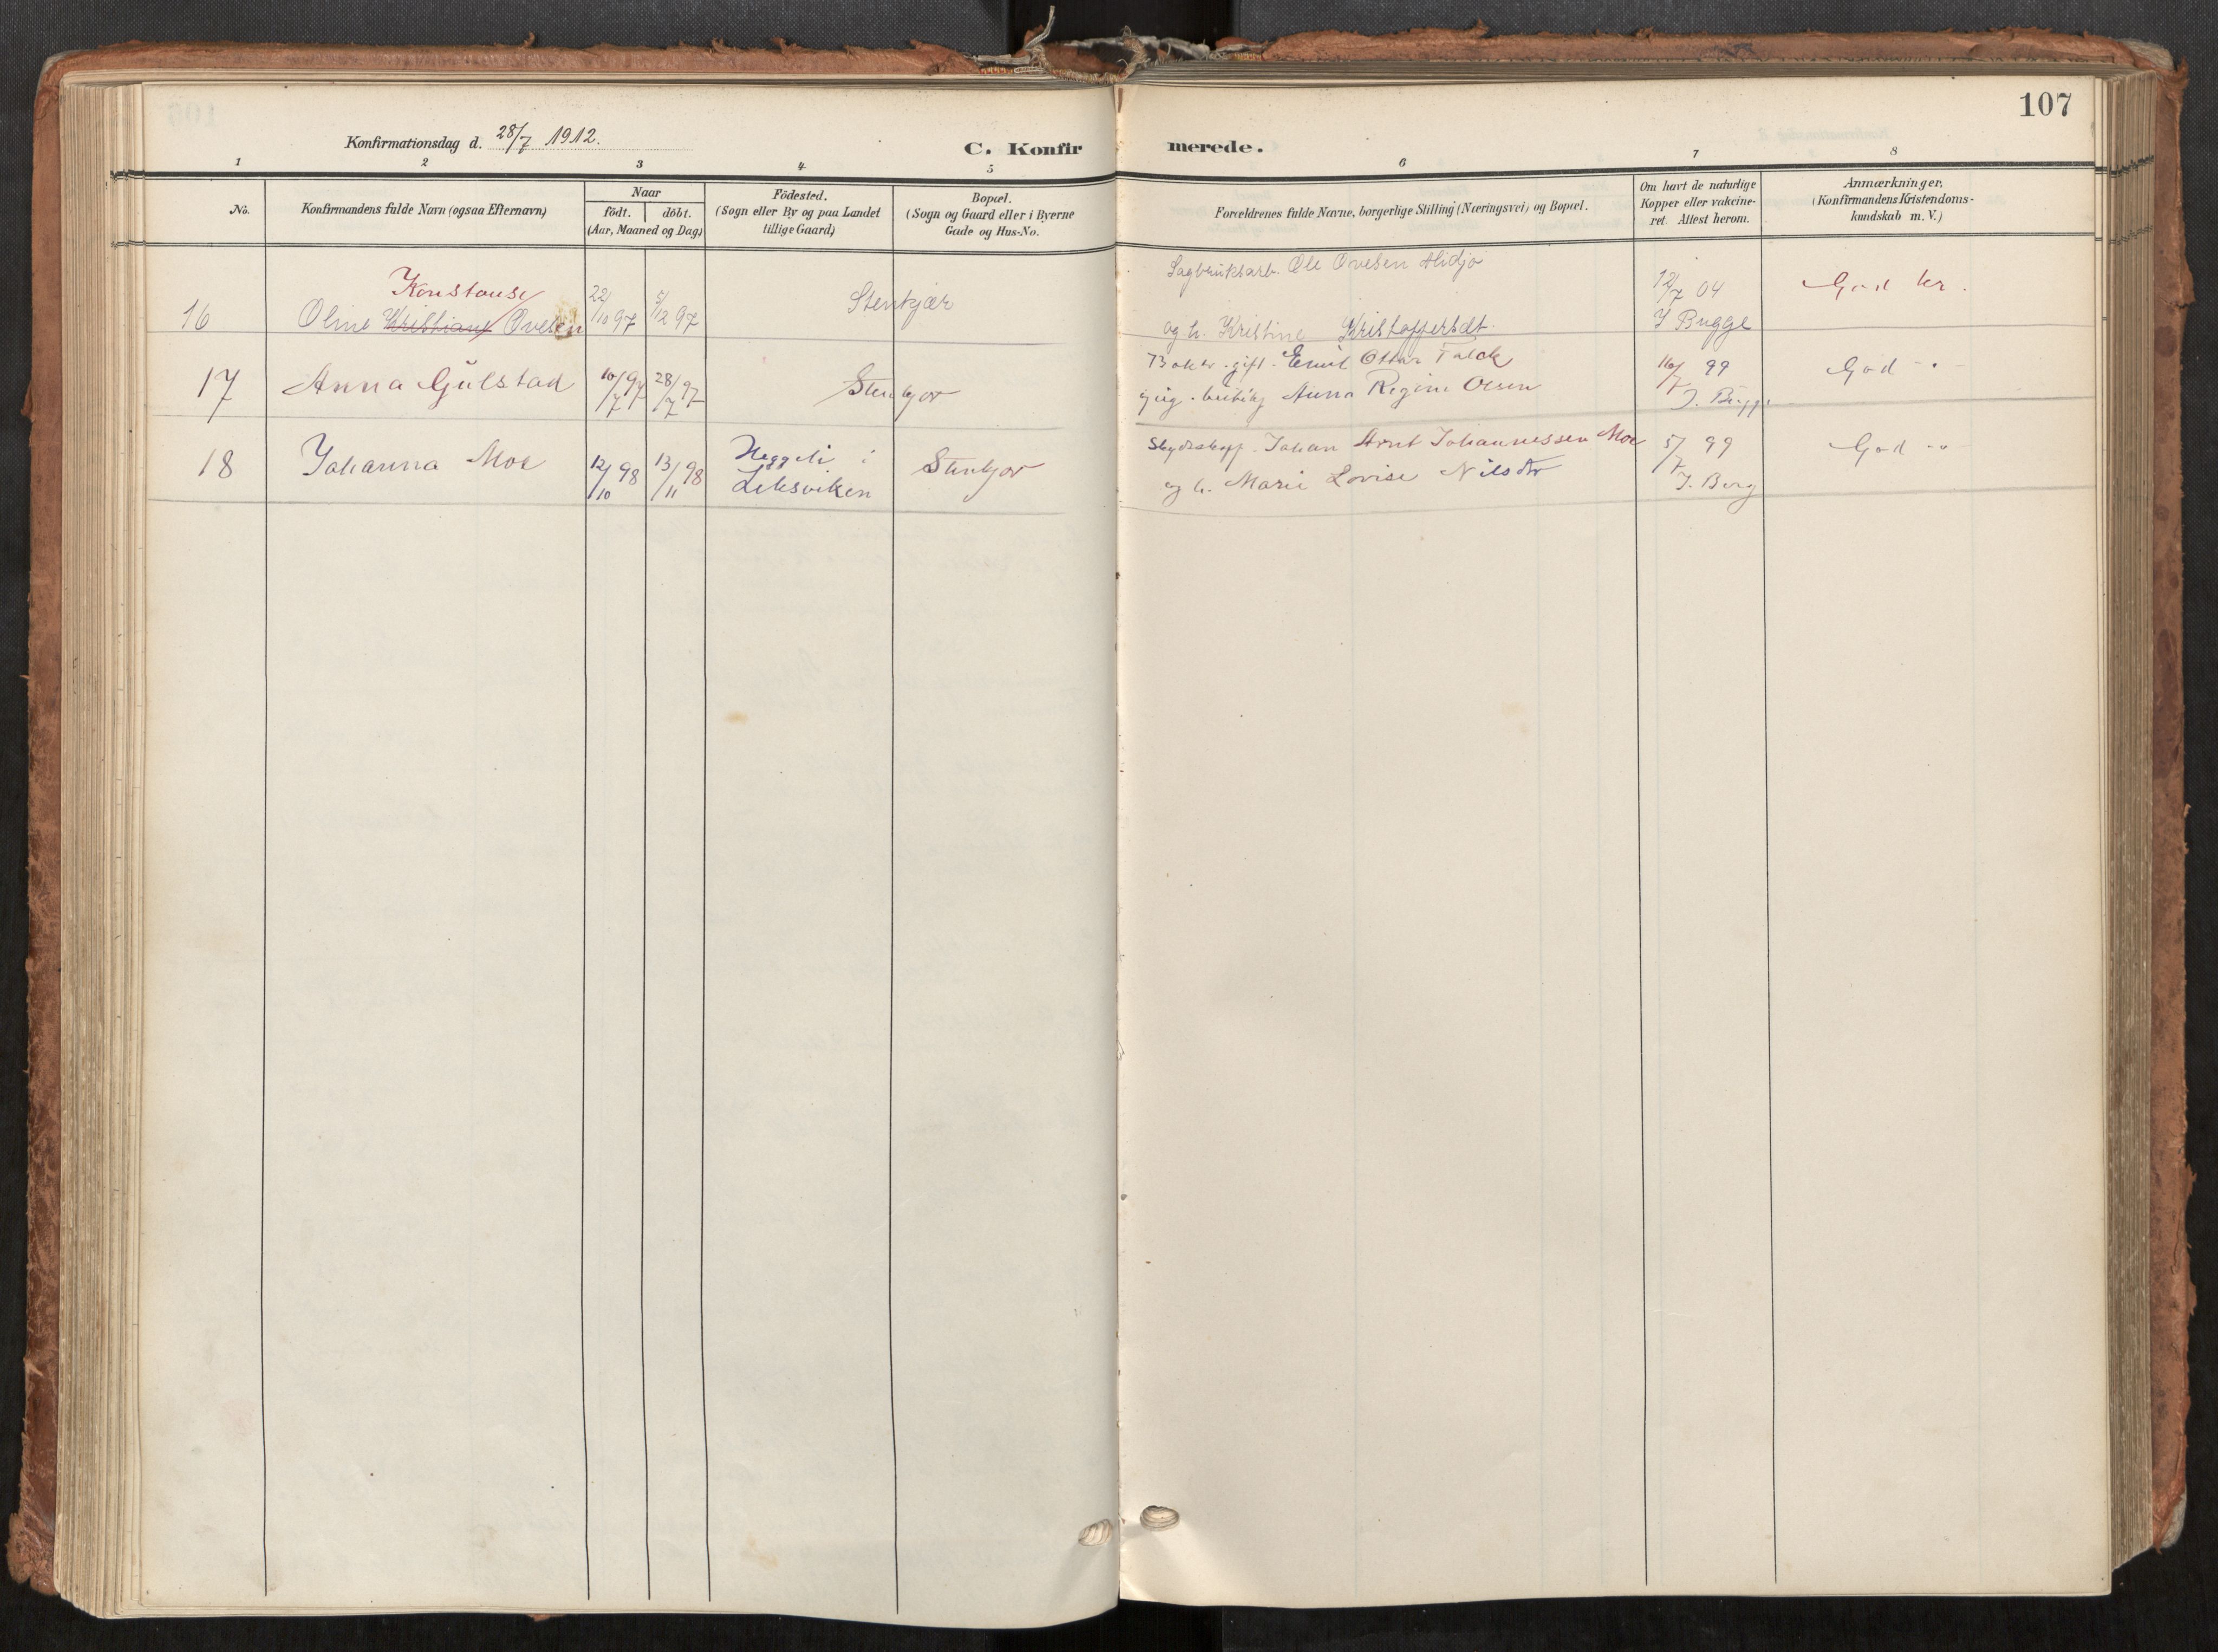 107
Konfirmationsdag d. 28/7 1912.
C. Konfirmerede.
1 2 3 4 5 6 7 8
No.
Konfirmandens fulde Navn (ogsaa Efternavn)
Naar
födt. döbt.
(Aar, Maaned og Dag)
Födested.
(Sogn eller By og paa Landet
tillige Gaard)
Bopæl.
(Sogn og Gaard eller i Byerne
Gade og Hus-No.
Forældrenes fulde Navne, borgerlige Stilling (Næringsvei) og Bopæl.
Om havt de naturlige
Kopper eller vakcine-
ret. Attest herom.
Anmærkninger.
(Konfirmandens Kristendoms-
kundskab m. V.)
Konstanse
16 Oline Kristiane Ovesen 22/10 97 5/12 97 Stenkjær
Sagbruksarb. Ole Ovesen
og h. Kristine Kristoffersdt.
12/7 04
J Bugge
God kr.
17 Anna Gülstad 10/7 97 28/7 97 Stenkjær
gift. Emil Ottar Falck
Anna Regine Olsen
16/7 99
J. Bugge
God - " -
18 Johanna Moe 12/10 98 13/11 98 Heggeli i
Leksviken
Stenkjær
Johan Arnt Johannessen Moe
og h. Marie Lovise Nilsdtr
5/7 99
J. Berg
God - "